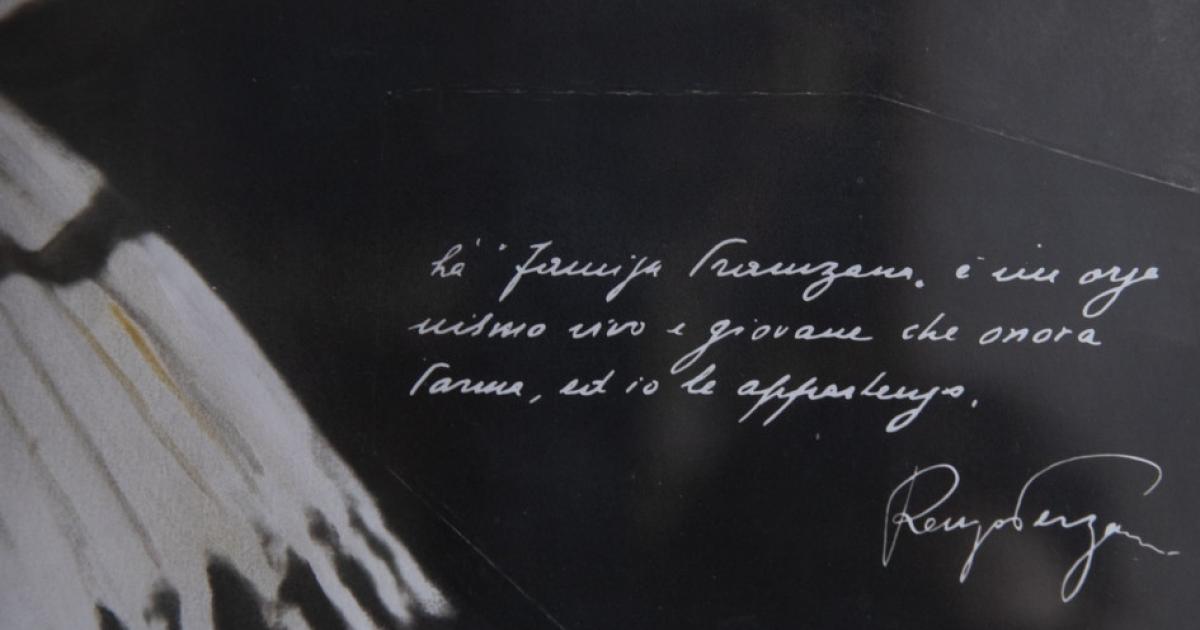 la "Famija Pramzana" è un orga
nismo vivo e giovane che onora
Parma, ed io le appartengo.
Renzo Pezzani